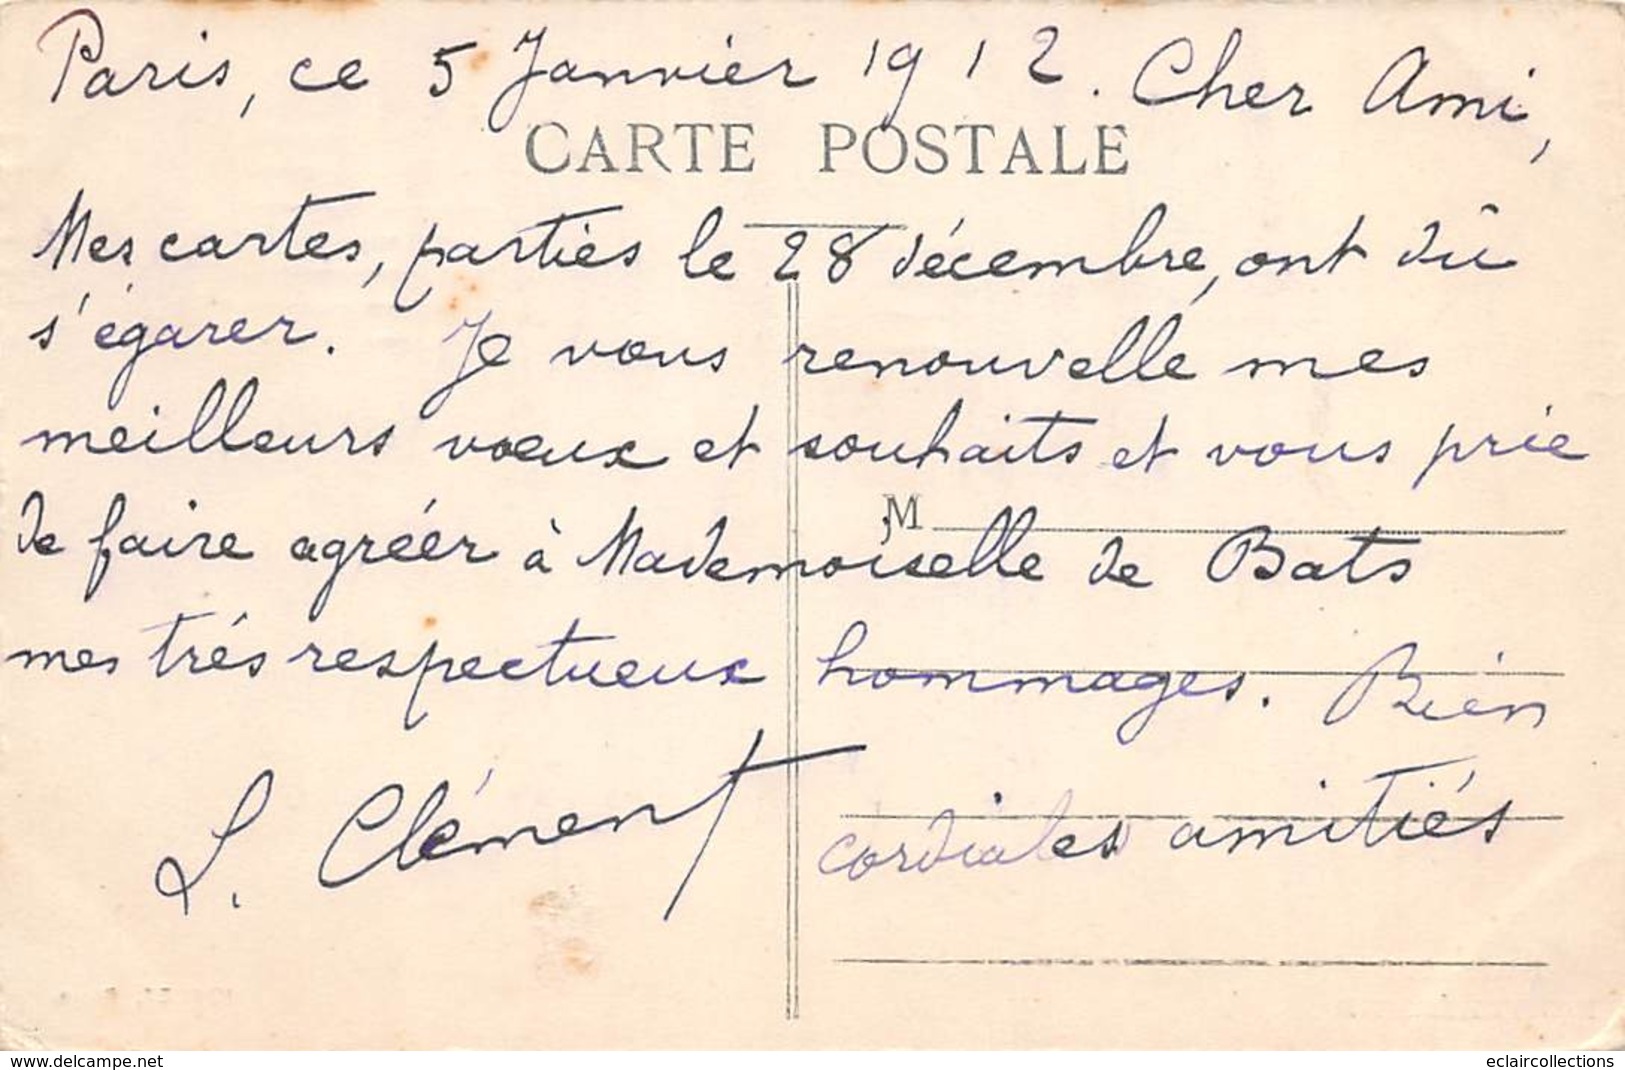 Paris, ce 5 Janvier 1912. Cher Ami,
CARTE POSTALE
Mes cartes, parties le 28 décembre, ont dû
s'égarer. Je vous renouvelle mes
meilleurs vœux et souhaits et vous prie
M
de faire agréer à Mademoiselle de Bats
mes très respectueux hommages. Bien
cordiales amitiés
L. Clément
www.delcampe.net
eclaircollections